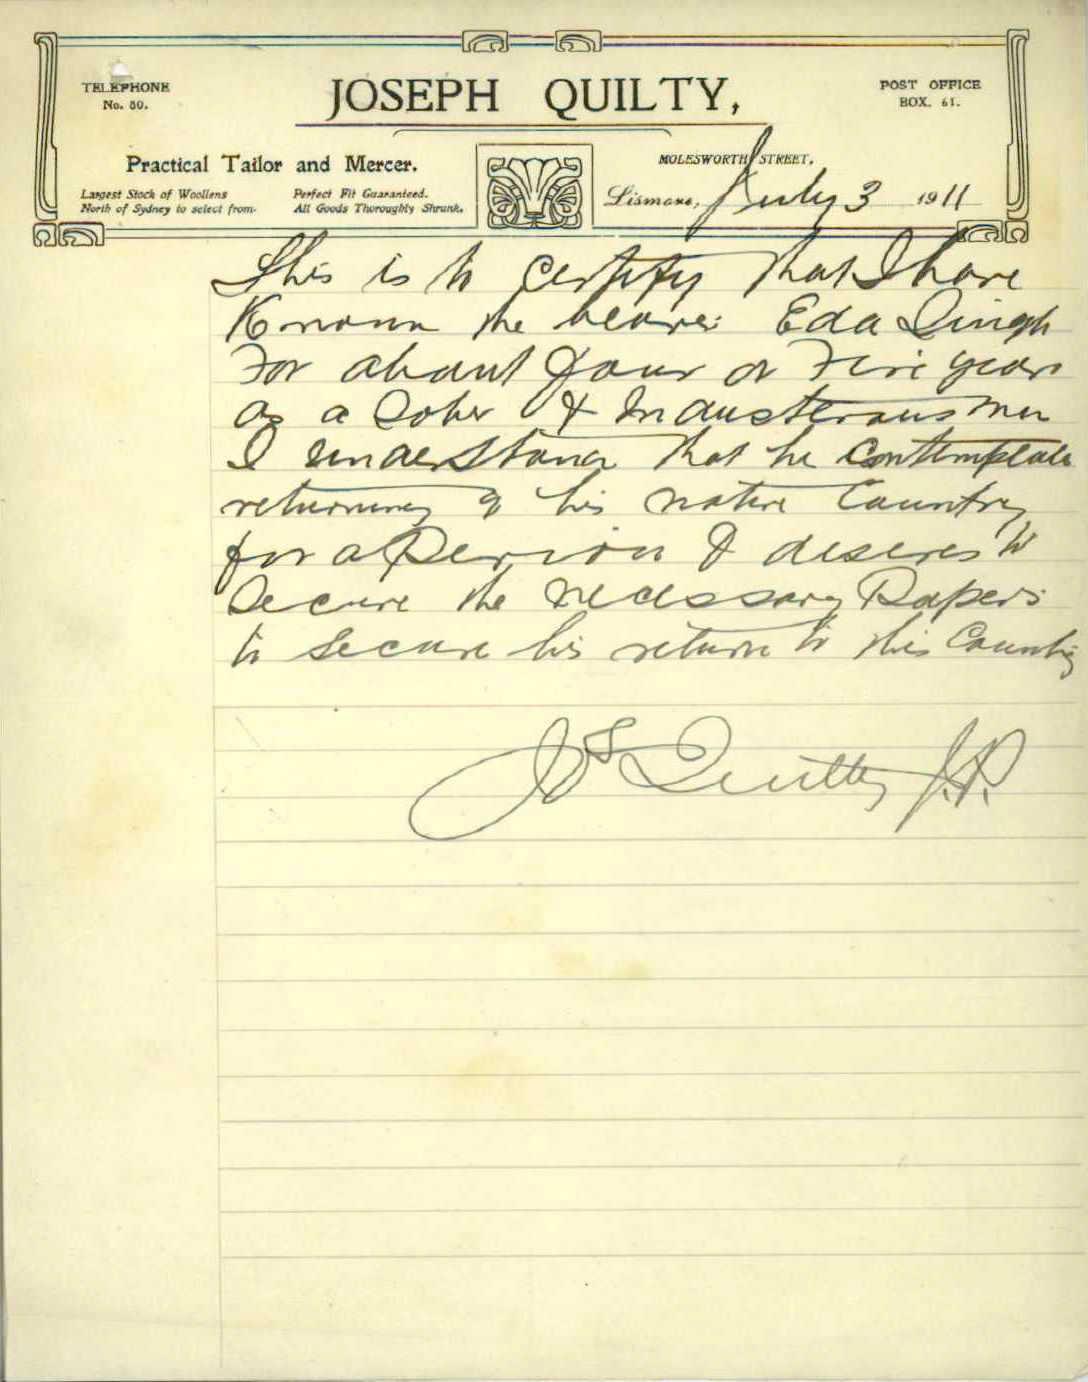 TELEPHONE
No. 80.
JOSEPH QUILTY,
POST OFFICE
BOX. 61.
Practical Tailor and Mercer.
Largest Stock of Woollens
North of Sydney to select from.
Perfect Fit Guaranteed.
All Goods Thoroughly Shrunk.
MOLESWORTH STREET,
Lismore, July 3 1911
This is to certify that I have
Known the bearer Eda Singh
For about four or Five years
as a Sober & Industerous man
I understand that he contemplate
returning to his native Country
for a Period & deseres to
Secure the necessary Papers
to secure his return to this Country
Jos Quilty J.P.